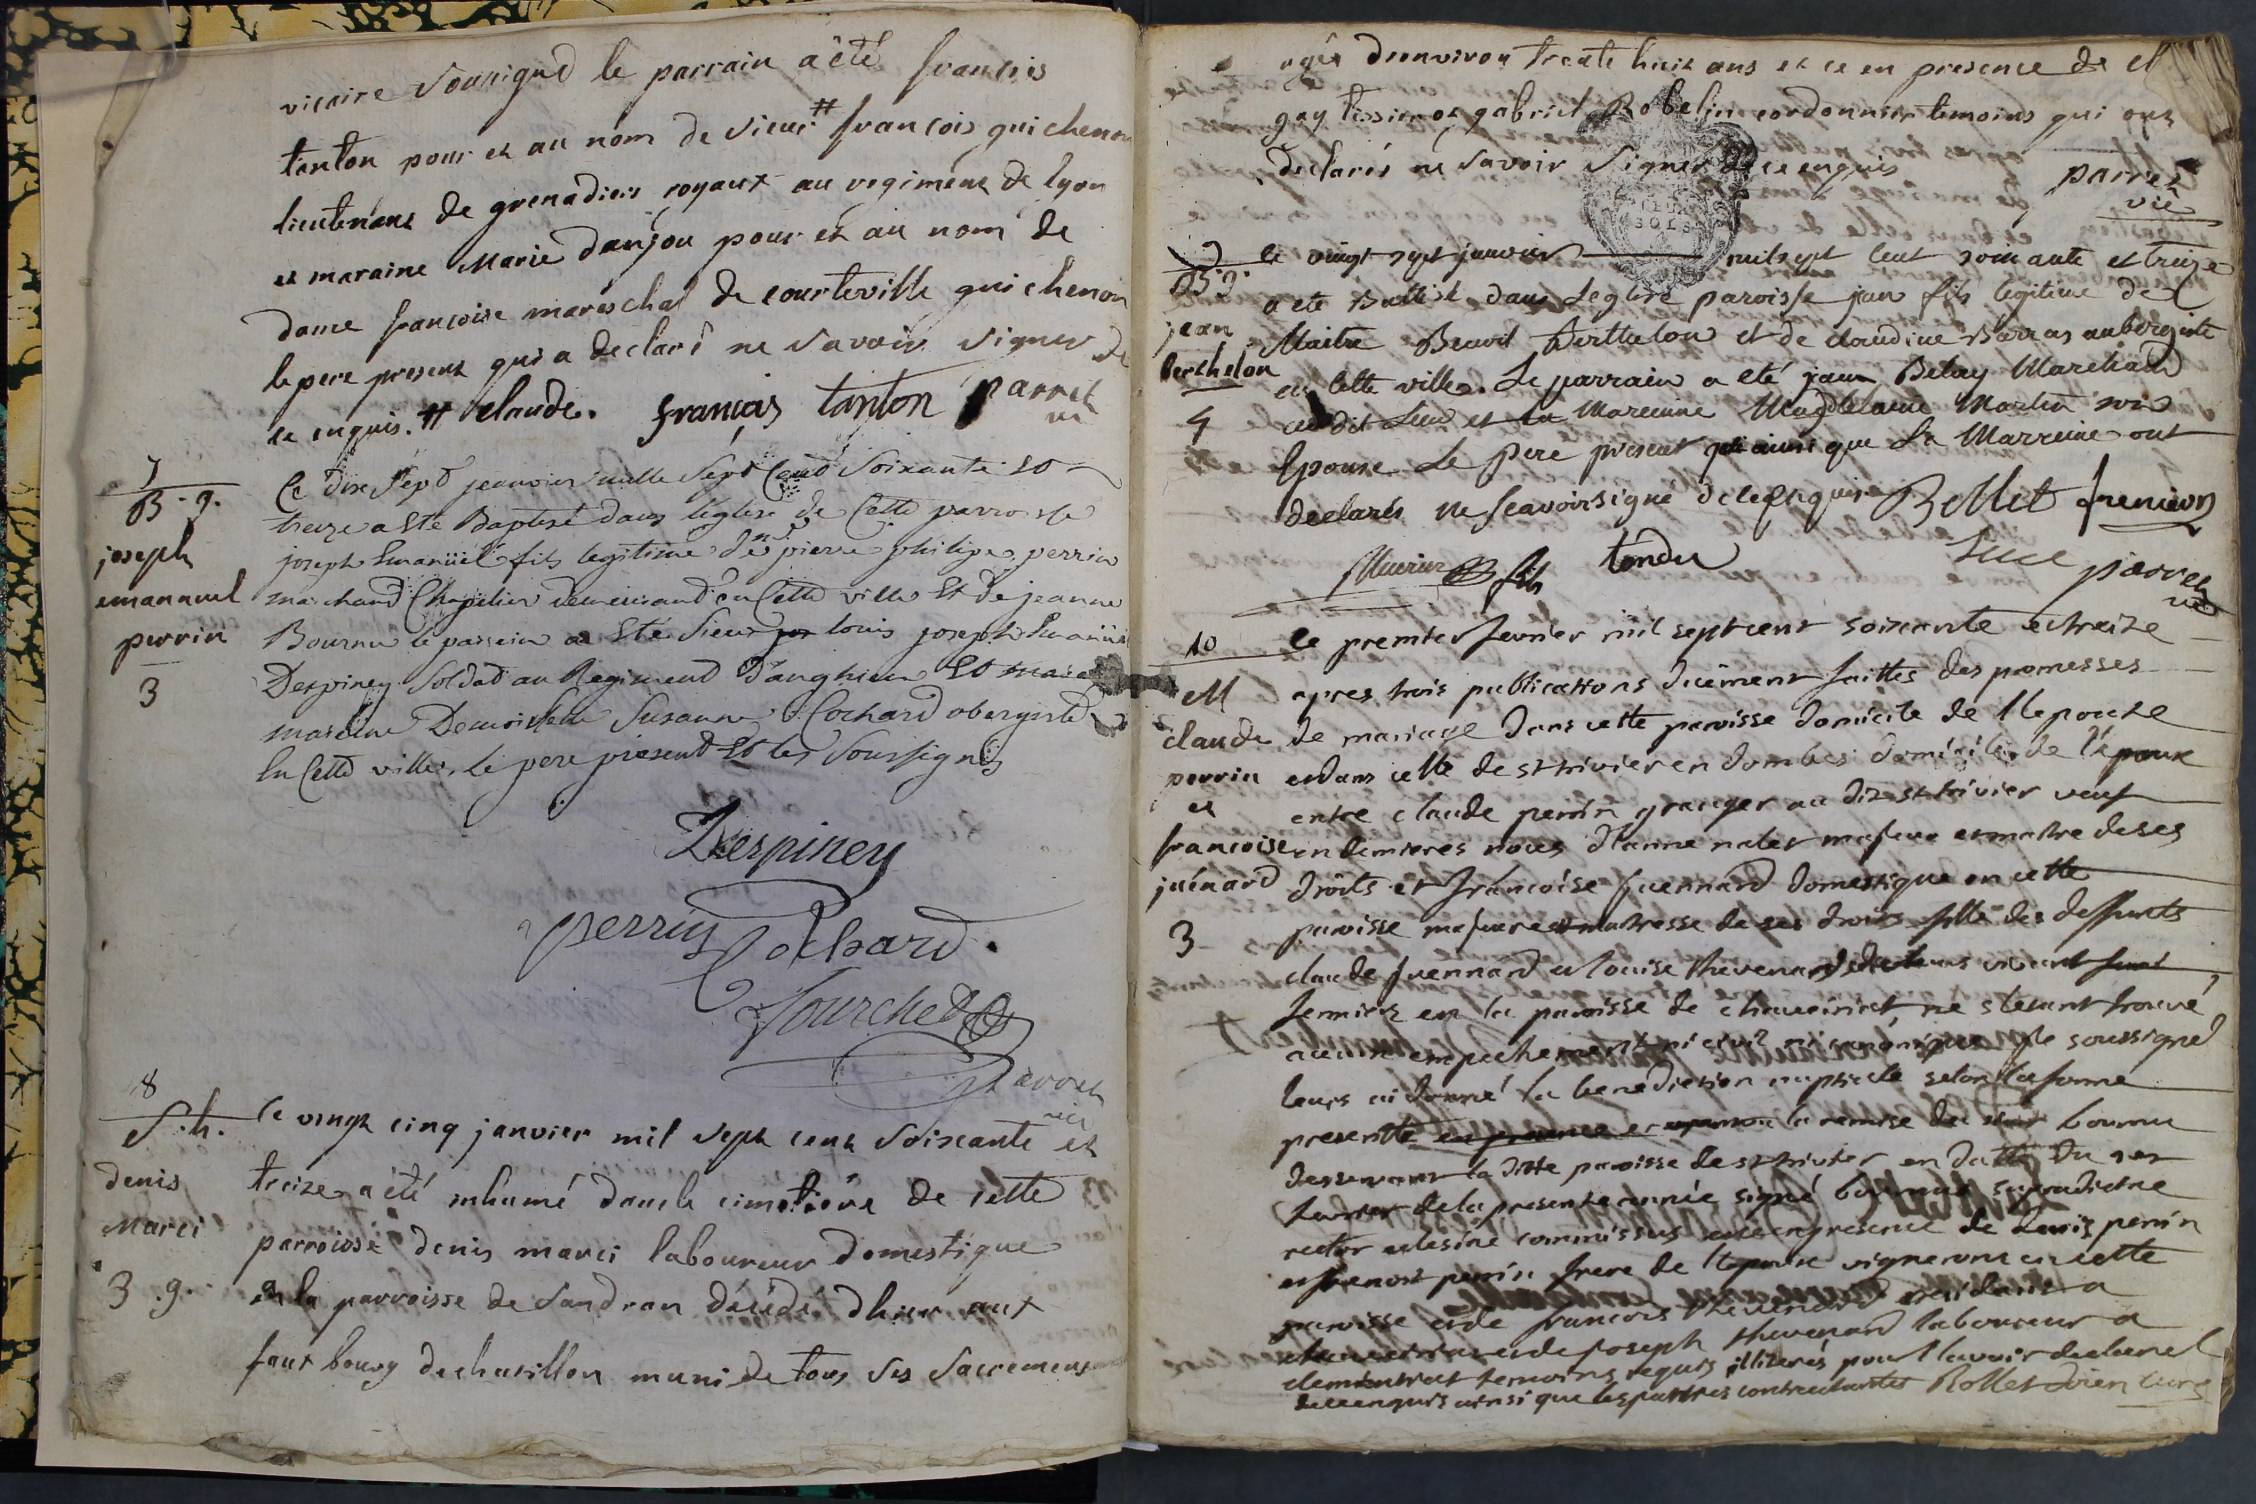 vicaire soussigné le parrain a été francois
tanton pour et au nom de sieur # francois guichenon
lieutenant de grenadiers royaux au regiment de lyon
et maraine Marie danjou pour et au nom de
dame francoise mareschal de courteville guichenon
le pere present qui a declaré ne savoir signer de
ce enquis. # claude. françois tanton parret
vic
7
B.g.
joseph
emanuel
perrin
3
Ce dix sept jeanvier mille sept Cend soixante et
treize a Eté Baptisé dans l'église de Cette parroisse
joseph Emanüel fils legitime de pierre philipe perrin
marchand Chapelier demeurand en Cette ville Et de jeanne
Bournu le parrein a Eté Sieur louis joseph Emanüel
Despiney Soldad au Regimend D'anghien Et
mareine Demoiselle Susanne Cochard obergiste
En Cette ville, le pere présend Et les soussignés
Despiney
perrin Cochard.
Fourchet
parret
vic
8
S.h.
denis
Marci
3.g.
le vingt cinq janvier mil sept cent soixante et
treize a été inhumé dans le cimetiére de cette
parroisse denis marci laboureur domestique
en la parroisse de Sandran décédé d'hier aux
faux bourg de chatillon muni de tous ses sacremens
agés d'environ trente huit ans et ce en presence de cl
gay tissier et gabriel Robelin cordonnier temoins qui ont
declarés ne savoir signer de ce enquis parret
vic
9
B.g.
jean
berthelon
4
le vingt sept janvier mil sept cent soixante et treize
a eté Battisé dans Leglise paroisse jean fils legitime de
Maitre Benoit Berthelon et de claudine Barras aubergiste
en cette ville. Le parrain a eté jean Belay Marchand
au dit Lieu et la Mareinne Magdelaine Martin son
Epouse Le Pere present ainsi que La Marreine ont
declarés ne scavoir signé de ce enquis Bellet
fils tondu Luce parret
vic
10
M
claude
perrin
et
francoise
juénard
3
le premier fevrier mil sept cent soixante et treize
apres trois publications duëment faittes des promesses
de mariage dans cette paroisse domicile de l'epouse
et dans celle de st trivier en dombes domicile de l'epoux
entre claude perrin granger au dit st trivier veuf
en dernieres noces d'anne nater majeur et maitre de ses
droits et francoise juennard domestique en cette
paroisse majeure et maitresse de ses droits fille des deffunts
claude juennard et louise thevenard vivant
fermiers en la paroisse de chaveiriat ne s'etant trouvé
aucun empechement ni civil ni canonique je soussigné
leurs ai donné la benediction nuptiale selon la forme
presentte la remise du sieur bournu
desservant la ditte paroisse de st trivier en datte du 1er
fevrier de la presente année signé bournu
rector ecclesiae commissus en presence de denis perrin
perrin frere de l'epoux vignerons en cette
paroisse et de francois thevenard residant a
et de joseph thevenard laboureur a
temoins requis illiterés pour l'avoir declarré
de ce enquis ainsi que les parties contractantes Rollet doien curé